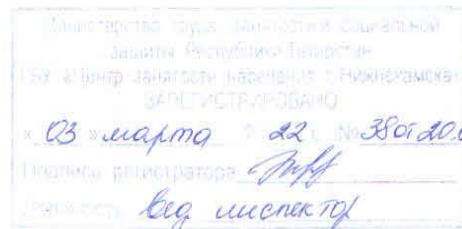 Министерство труда, занятости и социальной
защиты Республики Татарстан
ГБУ «Центр занятости населения г. Нижнекамска»
ЗАРЕГИСТРИРОВАНО
« 03 » марта 22 г. № 38 от 20.
Подпись регистратора
вед инспектор